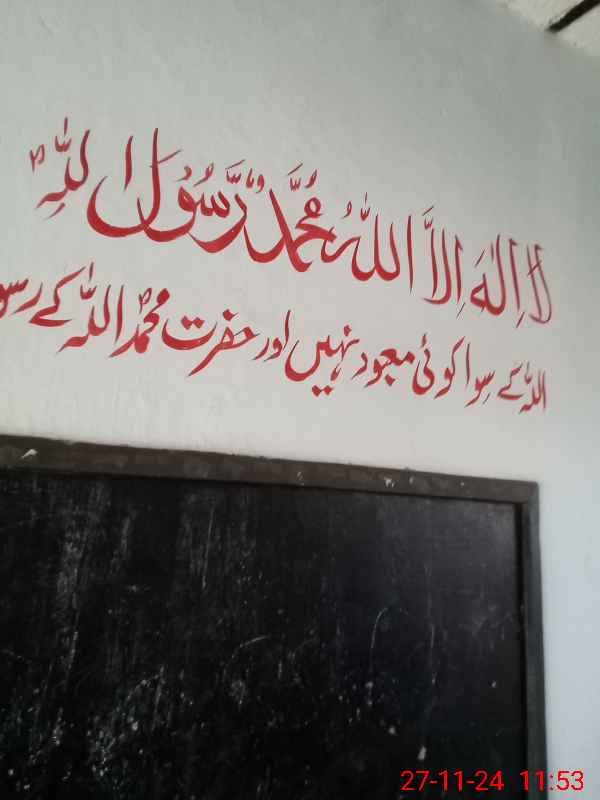 لَا اِلٰهَ اِلَّا اللّٰهُ مُحَمَّدٌ رَّسُوْلُ اللّٰهِؐ
اللّٰہ کے سِوا کوئی معبود نہیں اور حضرت محمدؐ اللّٰہ کے رسو
27-11-24 11:53